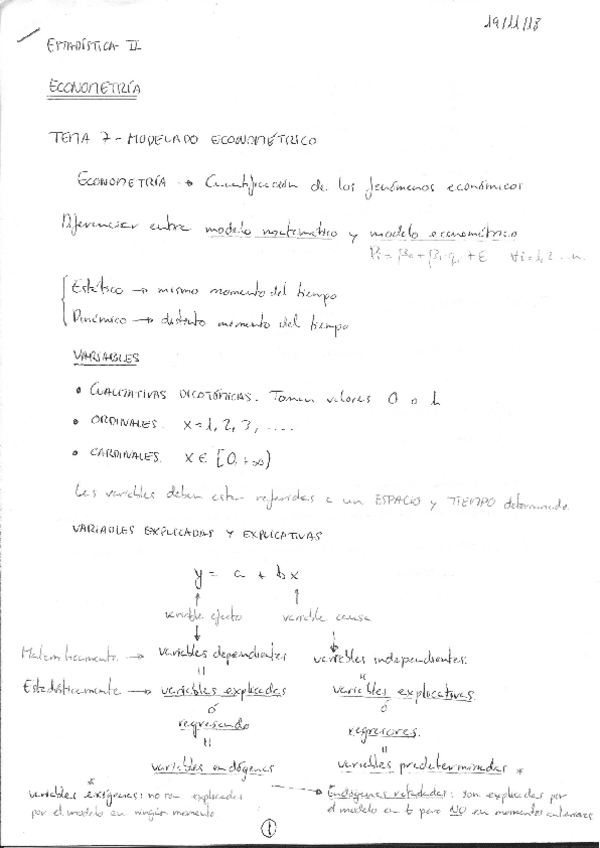 19/11/18
ESTADÍSTICA II
ECONOMETRÍA
TEMA 7 - MODELADO ECONOMÉTRICO
ECONOMETRÍA → Cuantificación de los fenómenos económicos
Diferenciar entre modelo matemático y modelo econométrico
Pi = β0 + β1·qi + ε ∀i = 1, 2 ... n.
Estático → mismo momento del tiempo
Dinámico → distinto momento del tiempo
VARIABLES
• CUALITATIVAS DICOTÓMICAS. Toman valores 0 o 1
• ORDINALES. x = 1, 2, 3, ....
• CARDINALES. x ∈ [0, +∞)
Las variables deben estar referidas a un ESPACIO y TIEMPO determinado.
VARIABLES EXPLICADAS Y EXPLICATIVAS
y = a + bx
variable efecto variable causa
Matemáticamente → variables dependientes variables independientes.
Estadísticamente → variables explicadas variables explicativas
ó ó
regresando regresores.
variables endógenas variables predeterminadas *
* variables exógenas: no son explicadas → Endógenas retardadas: son explicadas por
por el modelo en ningún momento el modelo en t pero NO en momentos anteriores
1